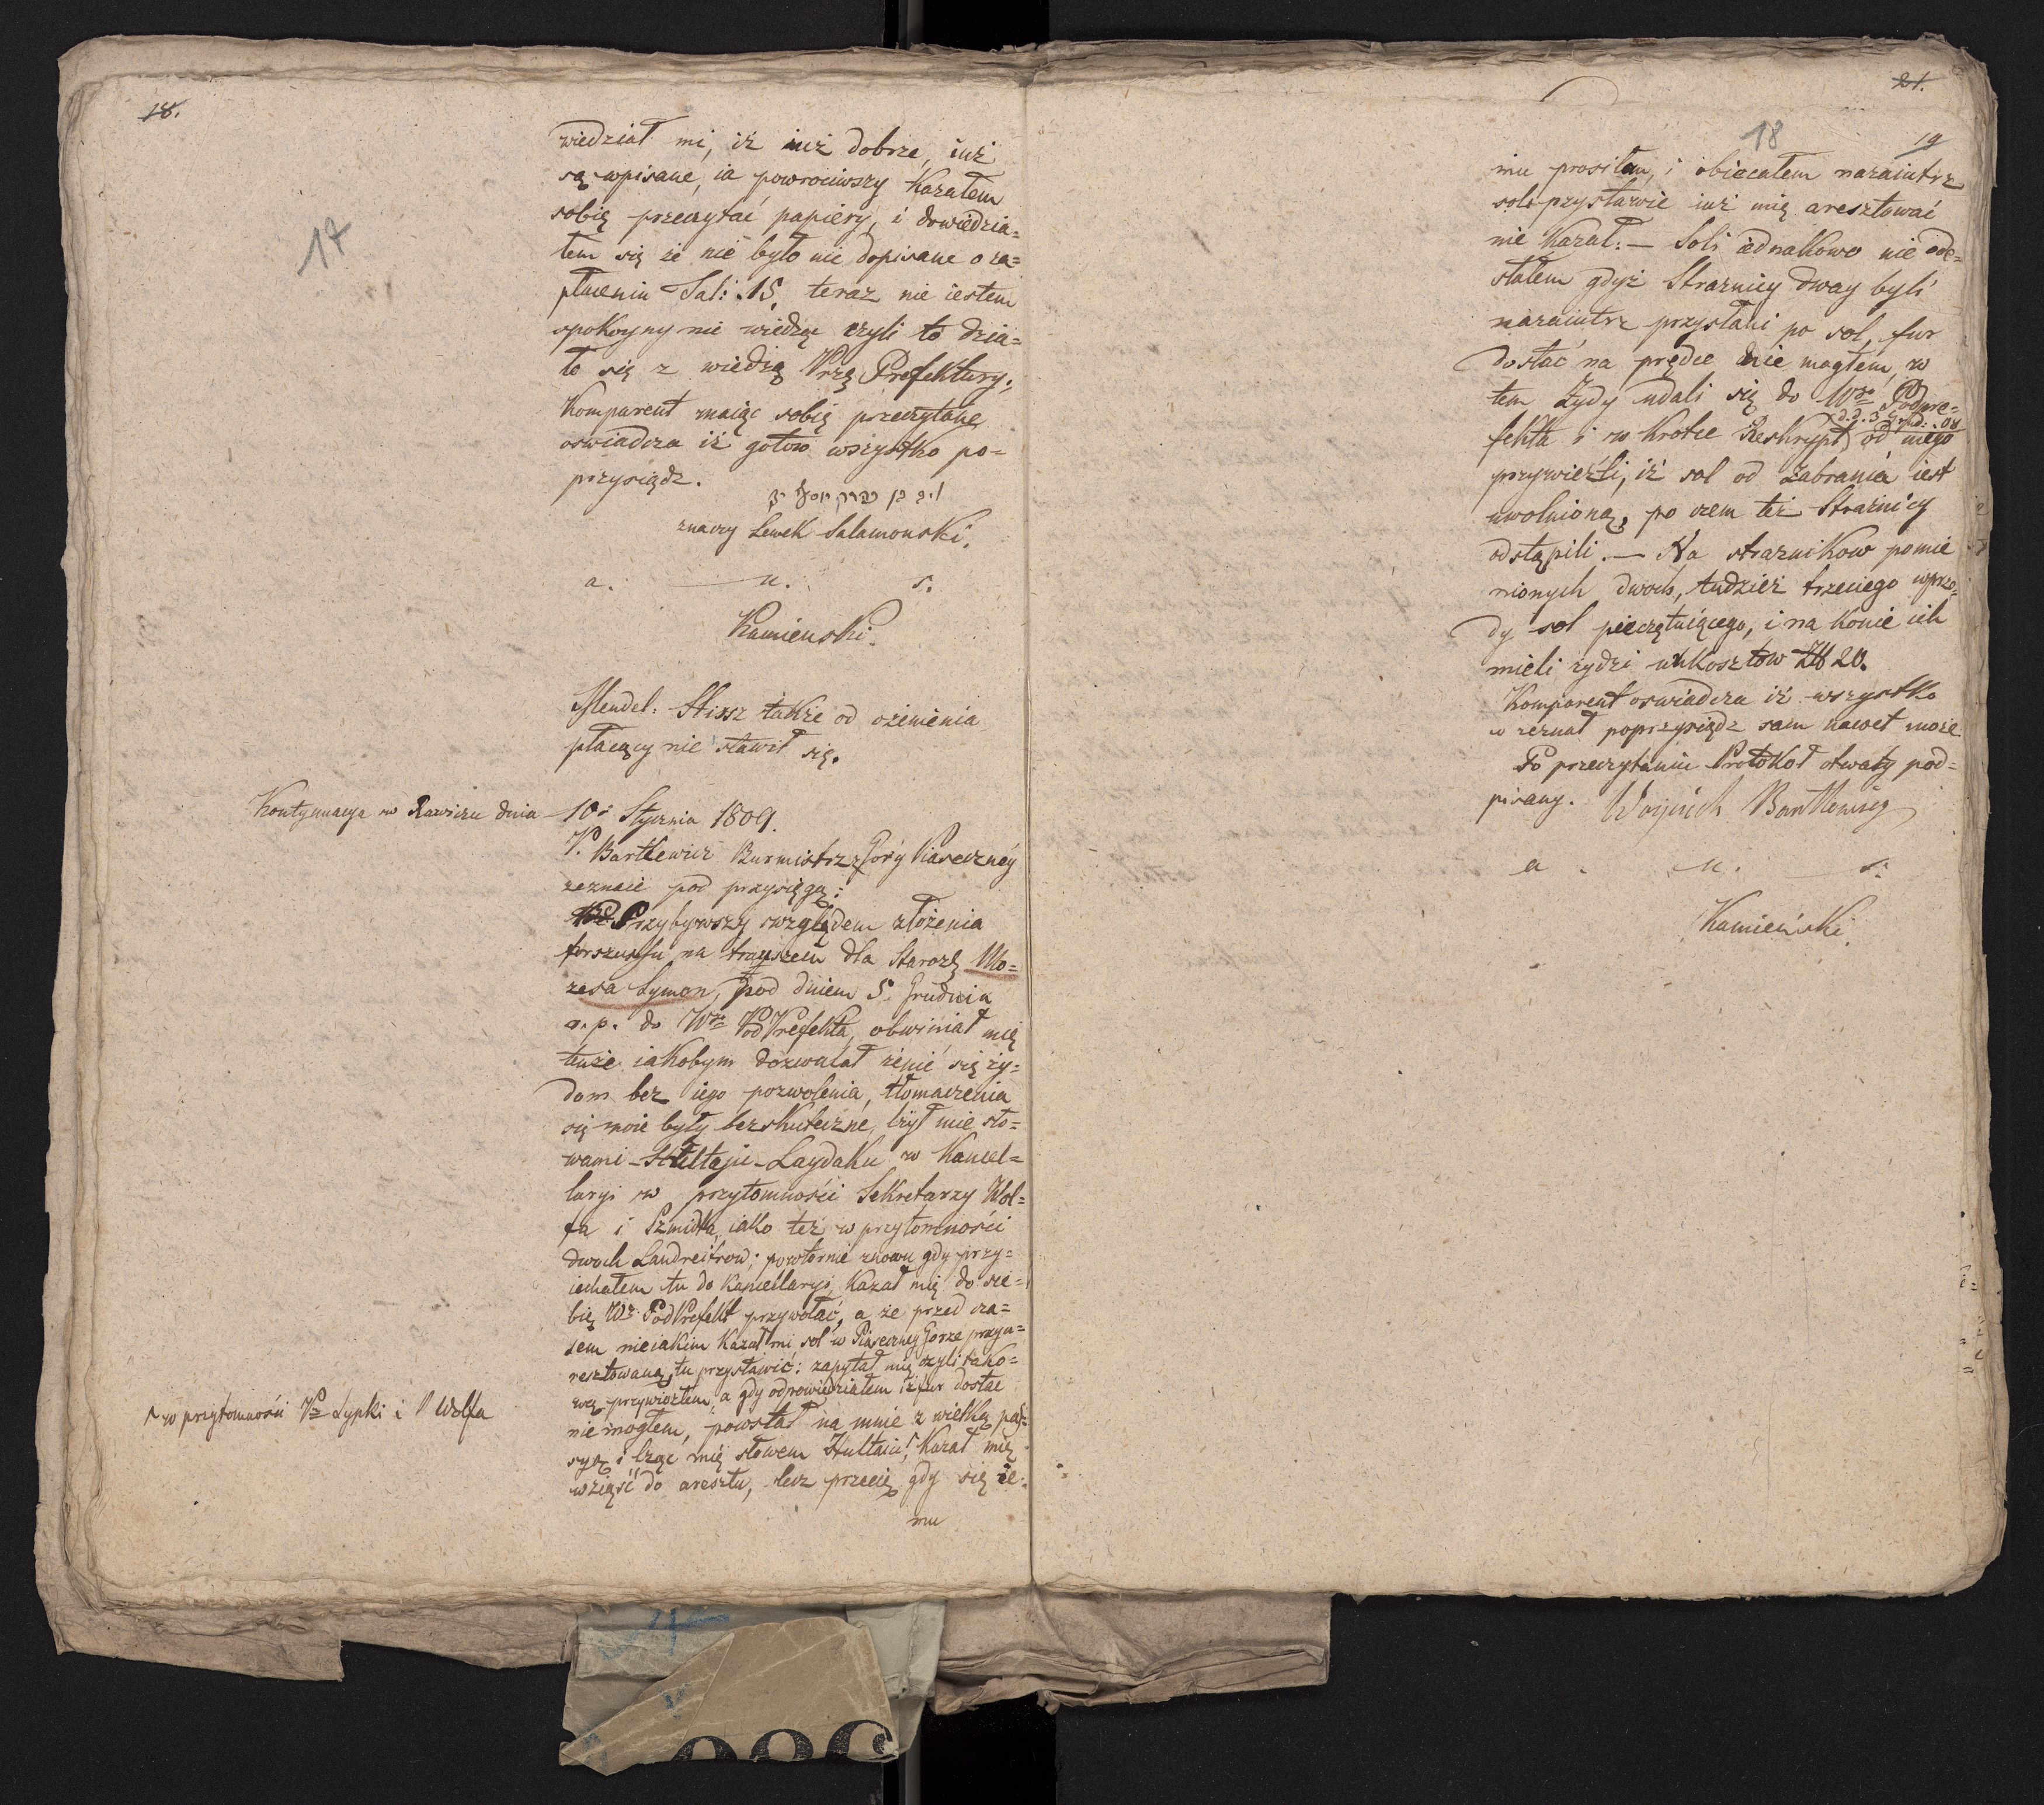 18.
17
wiedział mi, iż iuż dobrze, iuż
są wpisane, ia powrociwszy kazałem
sobię przeczytać papiery, i dowiedzia=
łem się że nie było nic dopisane o za=
płaceniu Tal: 15. teraz nie iestem
spokoyny nie wiedząc czyli to dzia=
ło się z wiedzą Prześ Prefektury.
Komparent maiąc sobię przeczytane
oswiadcza iż gotow wszystko po=
przysiądz.
znaczy Lewek Salamonski.
a. u. s.
Kamienski.
Mendel: Stissz także od ożenienia
płacący nie stawił się.
Kontynuacya w Rawiczu dnia 10. Stycznia 1809.
P. Bartlewicz Burmistrz z Gory Piaseczney
zeznaie pod przysięgą:
Przybywszy względem złożenia
forszussu na trayszein dla Staroz: Mo=
zesa Symon, pod dniem 5. Grudnia
a. p. do Wgo PodPrefekta, obwiniał mię
tenże iakobym dozwalał żenić się ży=
dom bez iego pozwolenia, tłomaczenia
się moie były bezskuteczne, lżył mię sło=
wami Hultaju Laydaku w Kancel=
laryi w przytomności Sekretarzy Wol=
fa i Szmidta, iako też w przytomności
dwoch Landreitrow; powtornie znowu gdy przy=
iechałem tu do Kancellaryi, kazał mię do sie=
bię W. PodPrefekt przywołać, a że przed cza=
sem nieiakim kazał mi sol w Piaseczney Gorze przya=
resztowaną, tu przystawić: zapytał mię czyli tako=
wą przywiozłem, a gdy odpowiedziałem iż fur dostać
nie mogłem, powstał na mnie z wielką pas=
syą i lżąc mię słowem Hultaiu! kazał mię
wziąść do aresztu, lecz przecię gdy się ie=
mu
w przytomności Pa Lypki i P Wolfa
21.
18
19
mu prosiłem, i obiecałem nazaiutrz
sol przystawić iuż mię aresztować
nie kazał. — Soli iednakowo nie ode=
słałem gdyż Straznicy dway byli
nazaiutrz przysłani po sol, fur
dostać na prędce nie mogłem, w
tem Zydy udali się do Wgo Podpre=
fekta i w krotce Reskrypt od niego
przywieźli, iż sol od zabrania iest
uwolnioną, po czem też Straznicy
odstąpili. — Na straznikow pomie
nionych dwoch, tudzież trzeciego wprze=
dy sol pieczętuiącego, i na konie ich
mieli zydzi unkosztow Zł 20.
Komparent oswiadcza iż wszystko
co zeznał poprzysiądz sam nawet może.
Po przeczytaniu Protokoł otwarty pod=
pisany. Woyciech Bartlewicz
a. u. s.
Kamieński.